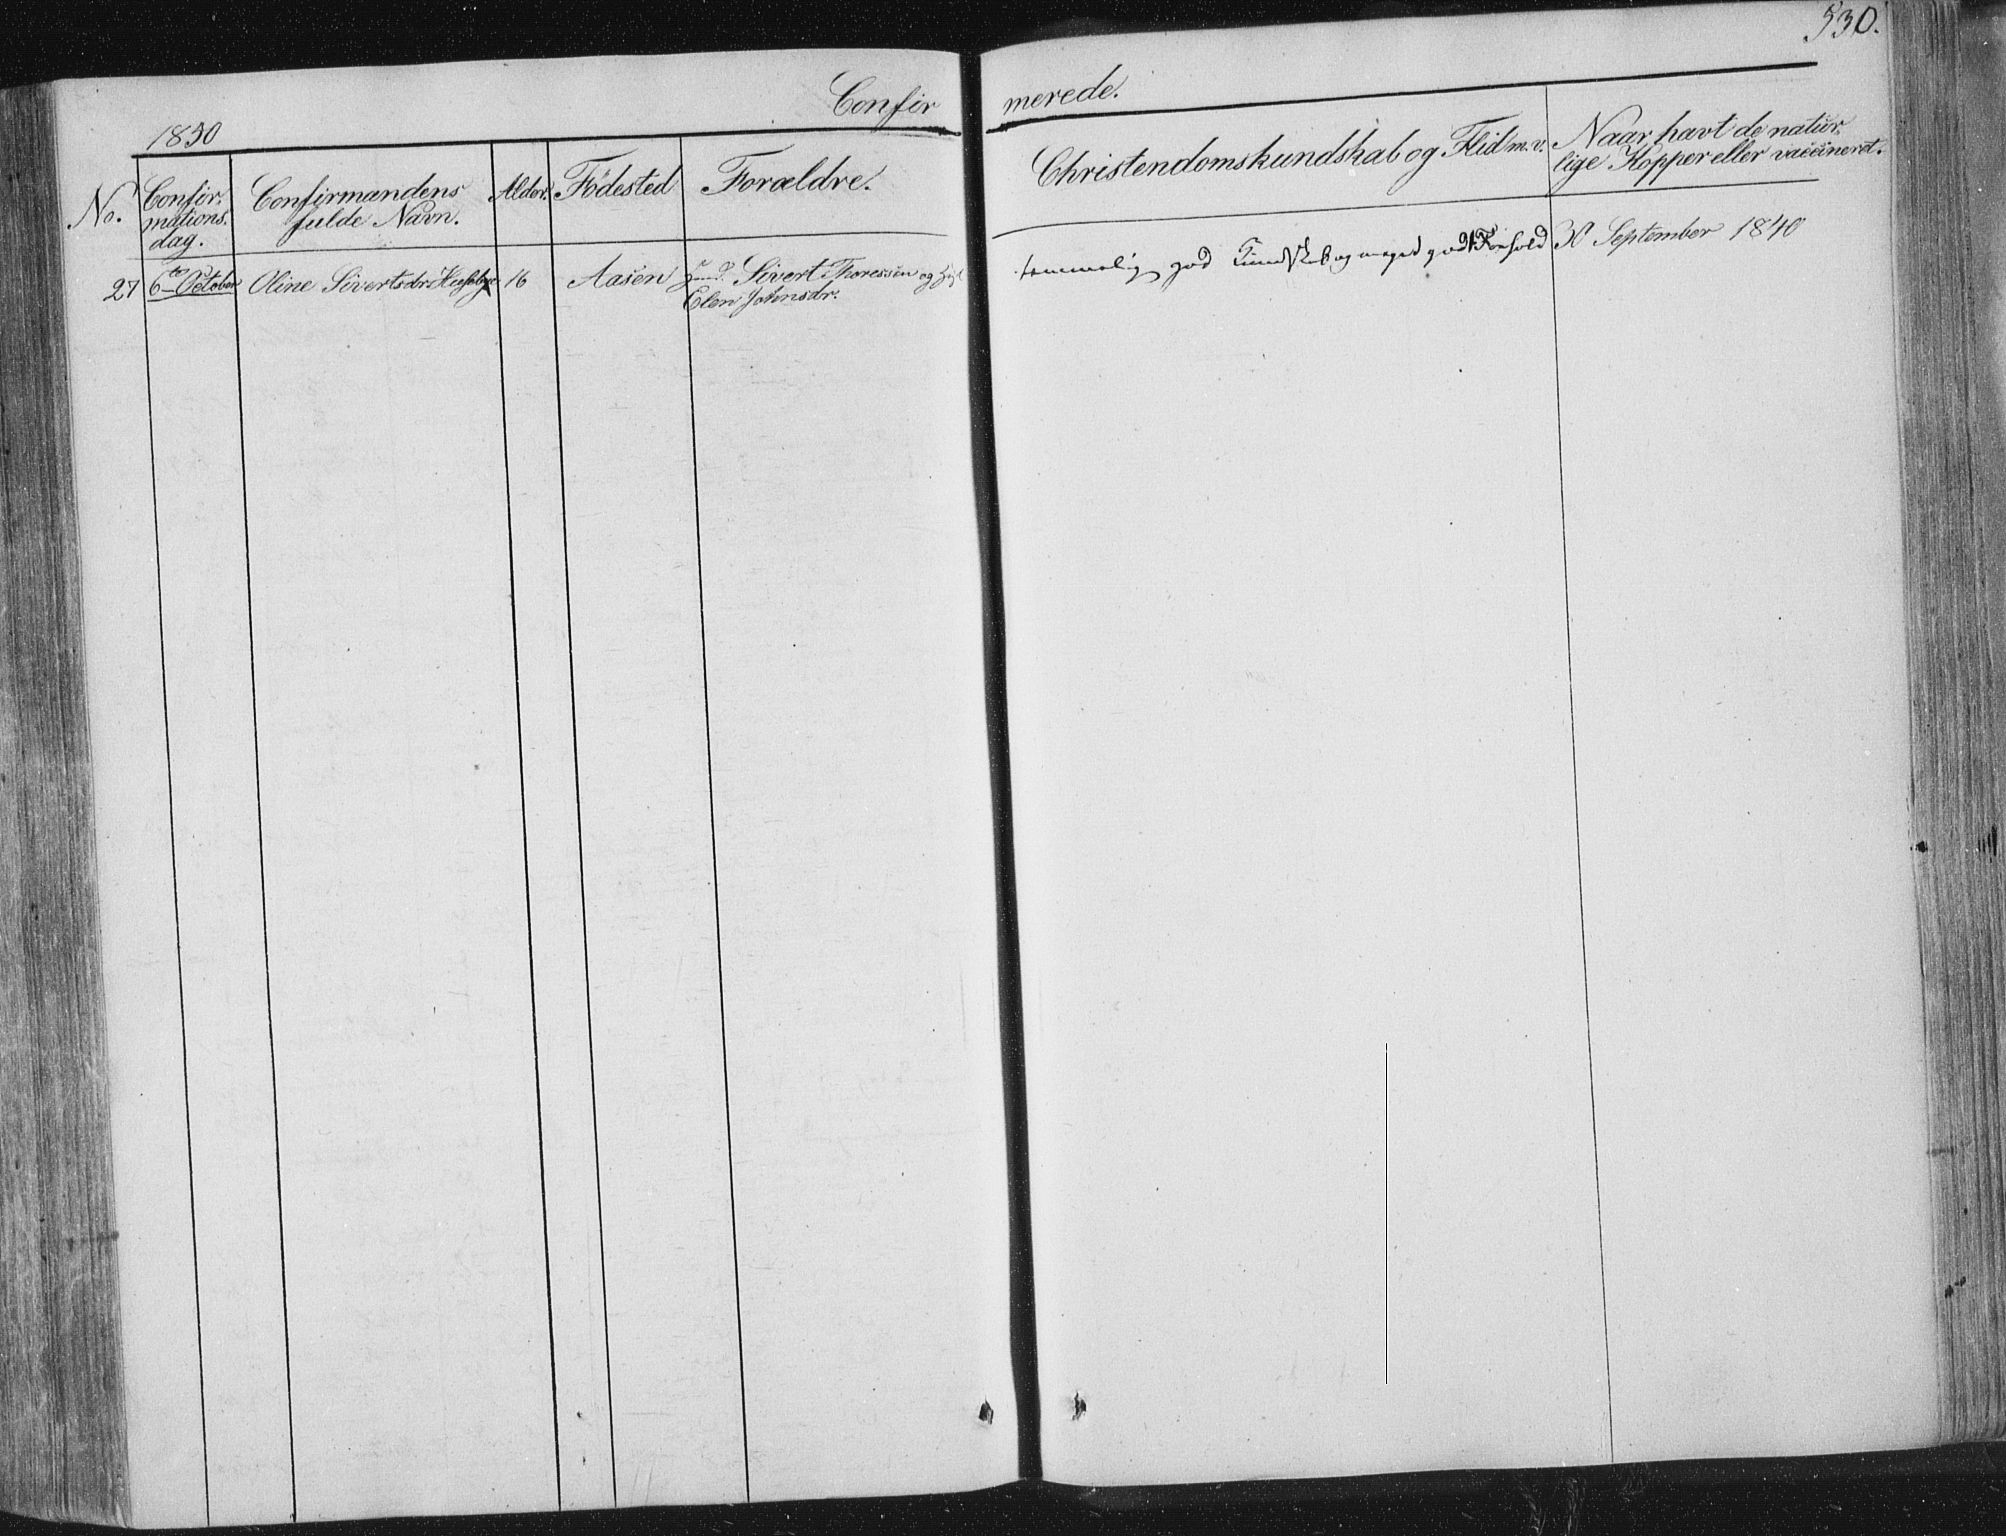 530.
Confirmerede.
1850
No.
Confirmations.dag.
Confirmandens fulde Navn.
Alder.
Födested
Forældre.
Christendomskundskab og Flid m.v.
Naar havt de naturlige Kopper eller vaccineret.
27
6te October
Oline Sivertsdr
16
Aasen
Sivert Thoressen og
Elen Johnsdr.
temmelig god Kundskab og meget godt Forhold
30 September 1840